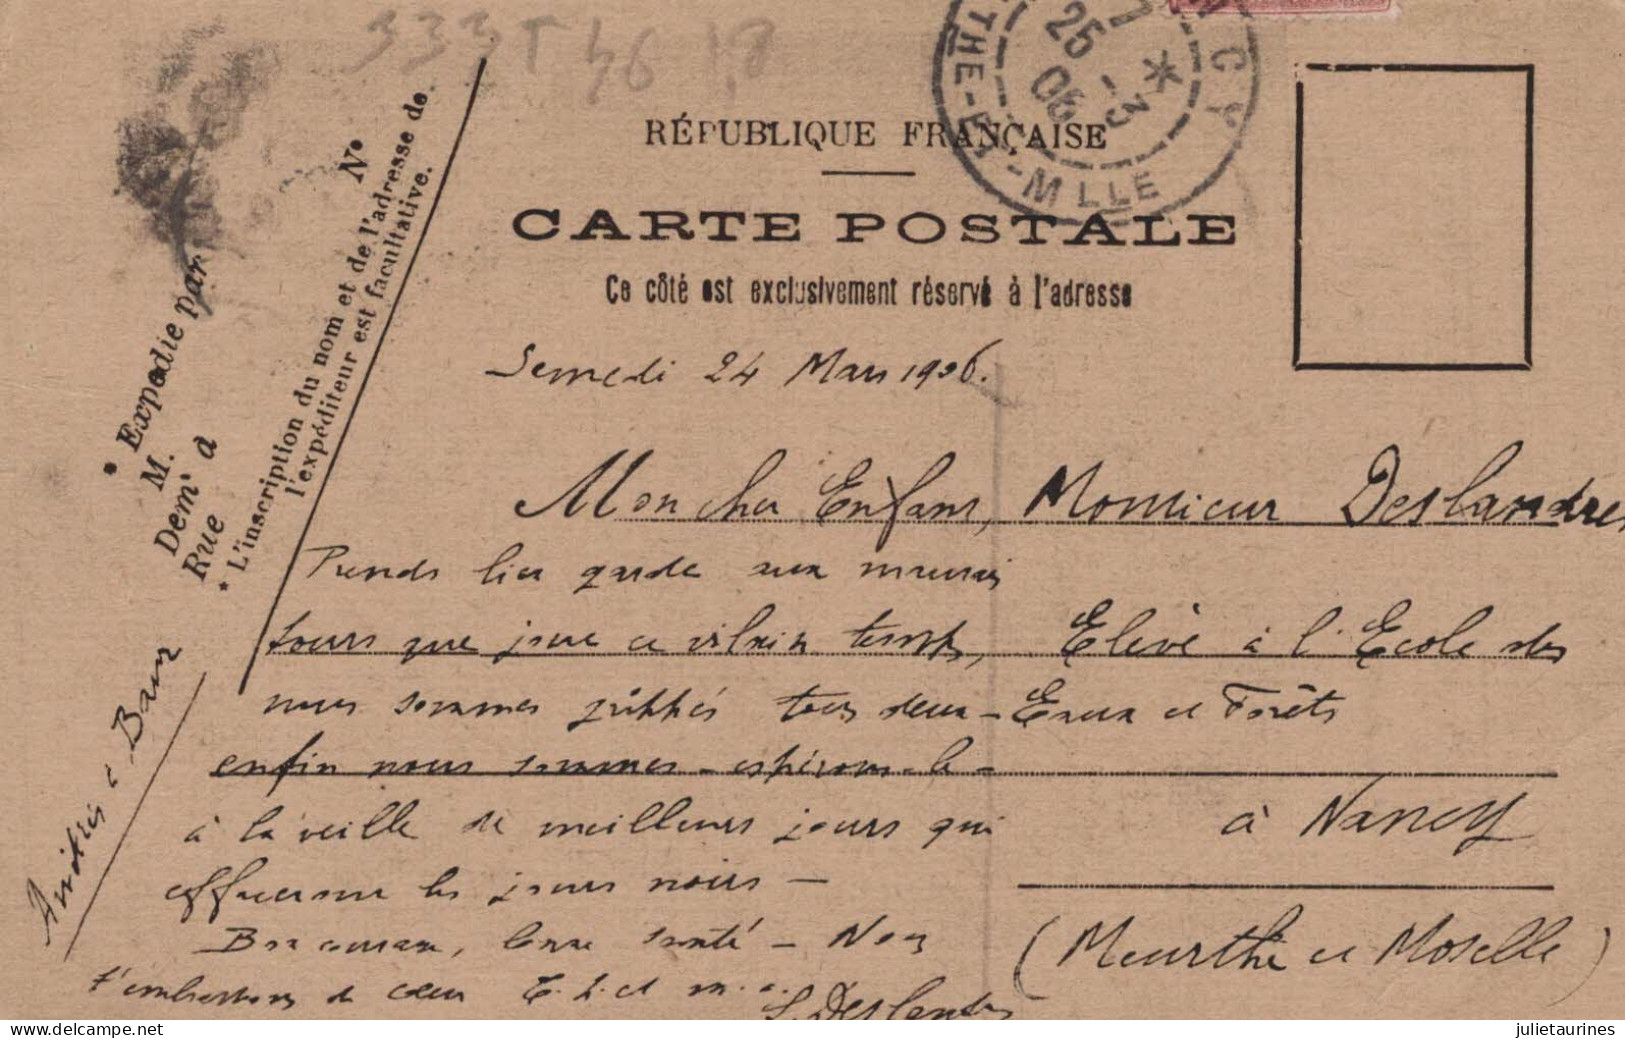 333 T 46 1,8
NANCY
MEURTHE-ET-MLLE
7
25 -3
06
RÉPUBLIQUE FRANÇAISE
CARTE POSTALE
Ce côté est exclusivement réservé à l'adresse
* Expédie par
M.
Demt à
Rue
N°
* L'inscription du nom et de l'adresse de
l'expéditeur est facultative.
Semedi 24 Mars 1906.
Mon cher Enfant,
Prends bien garde aux mauvais
tours que joue ce vilain temps,
nous sommes grippés tous deux -
enfin nous sommes - espérons-le -
à la veille de meilleurs jours qui
effaceront les jours noirs -
Bon courage, bonne santé - Nous
t'embrassons de cœur
L. Deslandres
Monsieur Deslandres
Elève à l'Ecole des
Eaux et Forêts
à Nancy
(Meurthe et Moselle)
delcampe.net
julietaurines